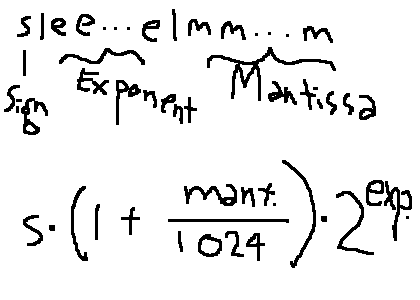 s|ee...e|mm...m
Sign Exponent Mantissa
s·(1 + mant./1024)·2^exp.